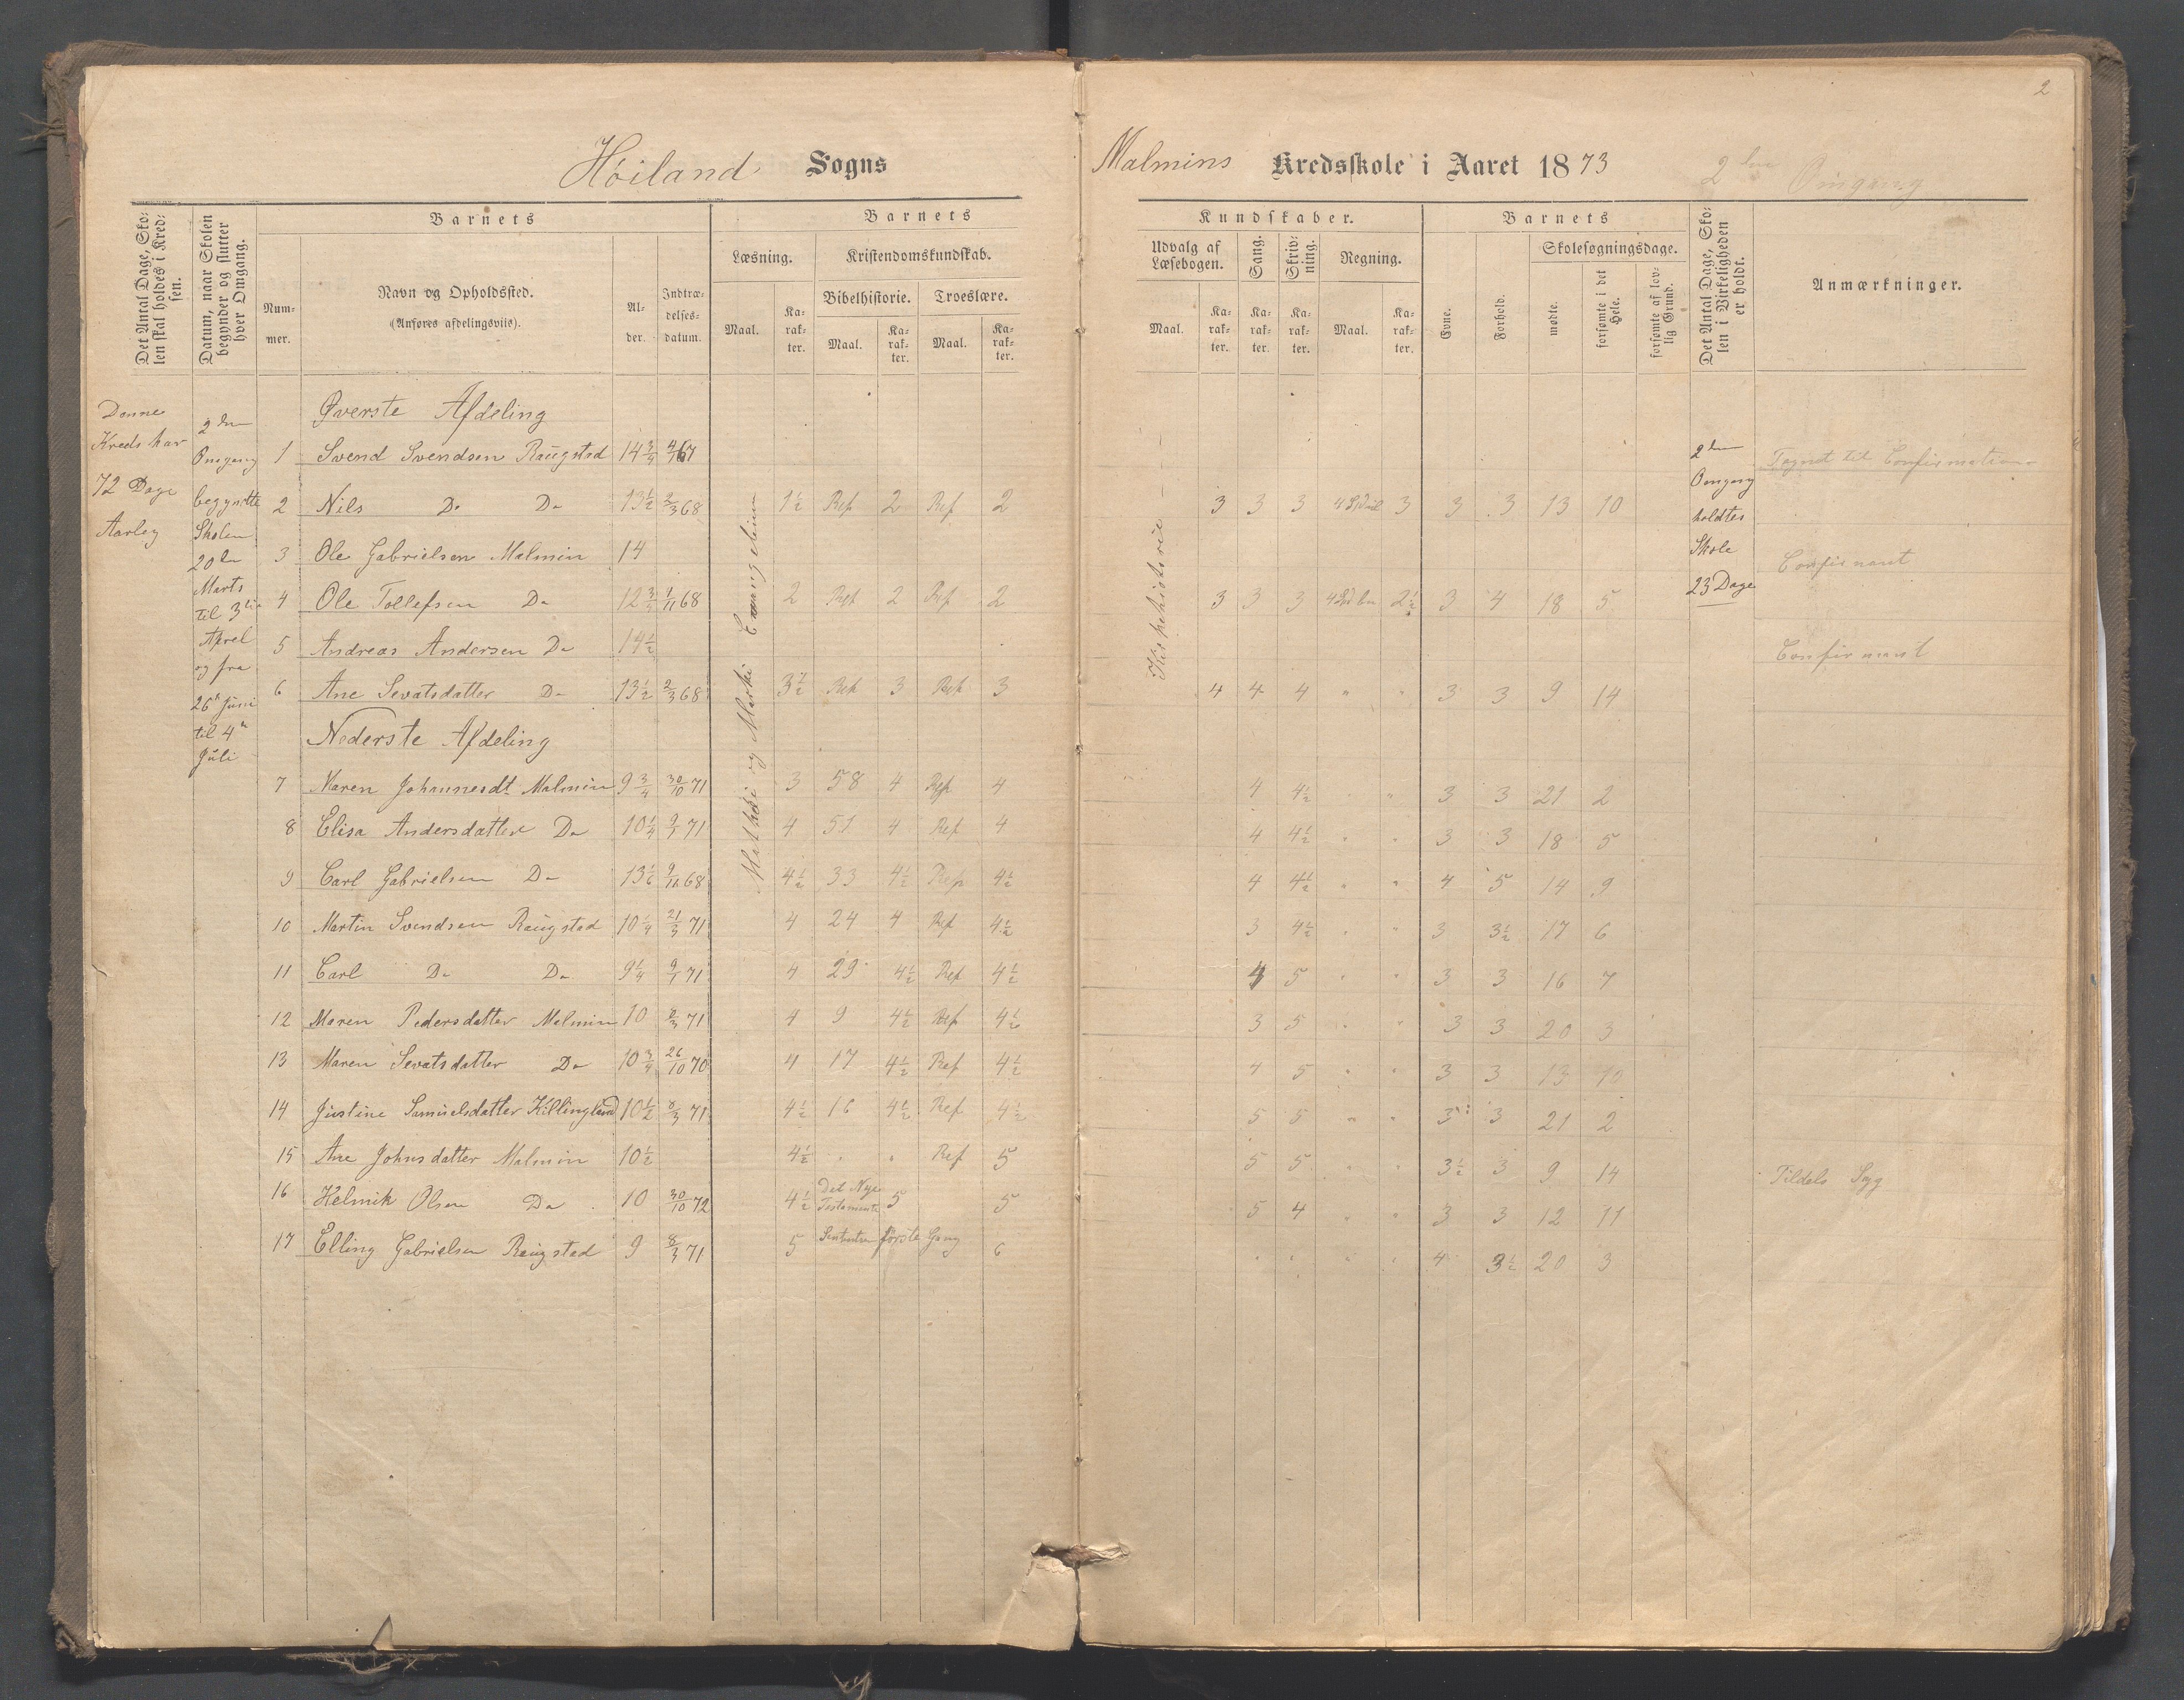 2
Höiland Sogns Malmins Kredsskole i Aaret 1873 2den Omgang
Det Antal Dage, Skolen skal holdes i Kredsen.
Datum, naar Skolen begynder og slutter hver Omgang.
Barnets
Nummer.
Navn og Opholdssted.
(Anføres afdelingsviis).
Alder.
Indtrædelsesdatum.
Barnets
Læsning.
Maal.
Karakter.
Kristendomskundskab.
Bibelhistorie.
Maal.
Karakter.
Troeslære.
Maal.
Karakter.
Kundskaber.
Udvalg af Læsebogen.
Maal.
Karakter.
Sang.
Karakter.
Skrivning.
Karakter.
Regning.
Maal.
Karakter.
Barnets
Evne.
Forhold.
Skolesøgningsdage.
mødte.
forsømte i det Hele.
forsømte af lovlig Grund.
Det Antal Dage, Skolen i Virkeligheden er holdt.
Anmærkninger.
Denne
Kreds har
72 Dage
Aarleg
2den
Omgang
begyndte
Skolen
20de
Marts
til 3die
Aprel
og fra
26de Juni
til 4de
Juli
Matthæi og Marki Evangelium
Kirkehistorie
2den
Omgang
holdtes
Skole
23 Dage
Øverste Afdeling
1 Svend Svendsen Raugstad 14 3/4 67 Confirmation
2 Nils Do Do 13 1/2 2/3 68 1 1/2 Rep 2 Rep 2 3 3 3 3 3 3 13 10
3 Ole Gabrielsen Malmin 14 Confirmant
4 Ole Tollefsen Do 12 3/4 1/11 68 2 Rep 2 Rep 2 3 3 3 2 1/2 3 4 18 5
5 Andreas Andersen Do 14 1/2 Confirmant
6 Ane Sevatsdatter Do 13 1/2 2/3 68 3 1/2 Rep 3 Rep 3 4 4 4 " " 3 3 9 14
Nederste Afdeling
7 Maren Johannesdt Malmin 9 3/4 30/10 71 3 58 4 Rep 4 4 4 1/2 " " 3 3 21 2
8 Elisa Andersdatter Do 10 1/4 9/1 71 4 51 4 Rep 4 4 4 1/2 " " 3 3 18 5
9 Carl Gabrielsen Do 13 1/6 9/11 68 4 1/2 33 4 1/2 Rep 4 1/2 4 4 1/2 " " 4 5 14 9
10 Martin Svendsen Raugstad 10 1/4 21/3 71 4 24 4 Rep 4 1/2 3 4 1/2 " " 3 3 1/2 17 6
11 Carl Do Do 9 1/4 9/1 71 4 29 4 1/2 Rep 4 1/2 4 5 " " 3 3 16 7
12 Maren Pedersdatter Malmin 10 8/3 71 4 9 4 1/2 Rep 4 1/2 3 5 " " 3 3 20 3
13 Maren Sevatsdatter Do 10 3/4 26/10 70 4 17 4 1/2 Rep 4 1/2 4 5 " " 3 3 13 10
14 Justine Samuelsdatter Killingland 10 1/2 8/3 71 4 1/2 16 4 1/2 Rep 4 1/2 5 5 " " 3 3 21 2
15 Ane Johnsdatter Malmin 10 1/2 4 1/2 " " Rep 5 5 5 " " 3 1/2 3 9 14 Tildels Syg
16 Helmik Olsen Do 10 30/10 72 4 1/2 Det Nye Testamente 5 5 5 4 " " 3 3 12 11
17 Elling Gabrielsen Raugstad 9 8/3 71 5 første Gang 6 " " " " 4 3 1/2 20 3